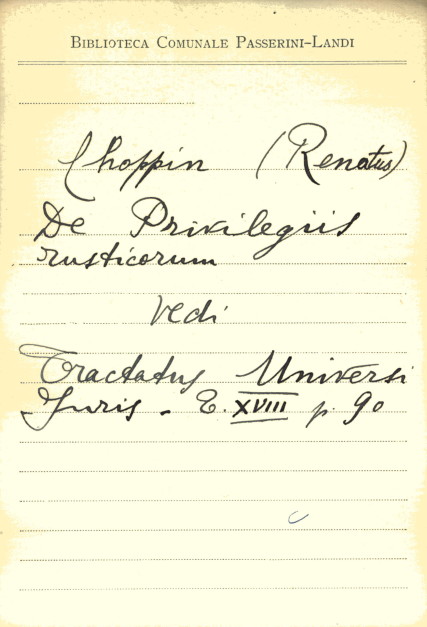 BIBLIOTECA COMUNALE PASSERINI-LANDI
Choppin (Renatus)
De Privilegiis
rusticorum
Vedi
Tractatus Universi
Juris - T. XVIII p. 90